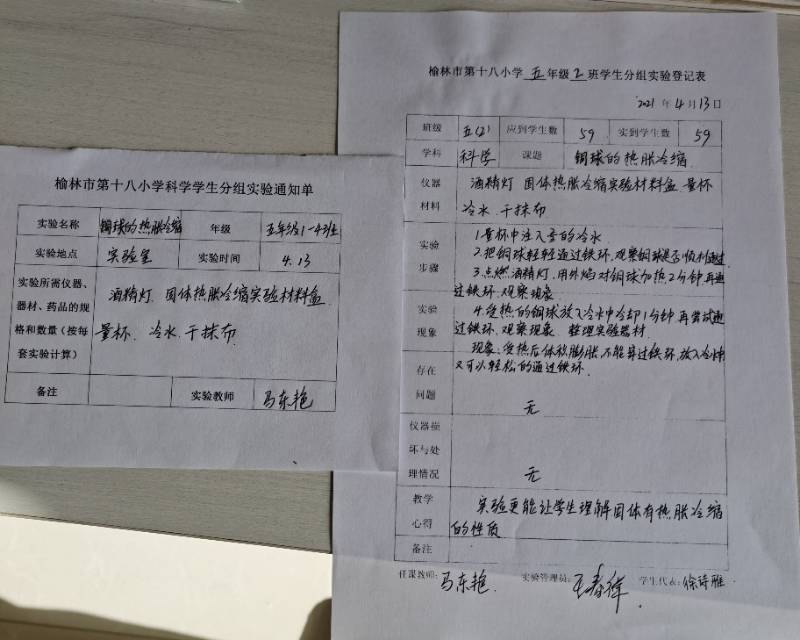 榆林市第十八小学科学学生分组实验通知单
实验名称 钢球的热胀冷缩 年级 五年级1-4班
实验地点 实验室 实验时间 4.13
实验所需仪器、器材、药品的规格和数量（按每套实验计算） 酒精灯、固体热胀冷缩实验材料盒
量杯、冷水、干抹布
备注 实验教师 马东艳
榆林市第十八小学五年级2班学生分组实验登记表
2021年4月13日
班级 五(2) 应到学生数 59 实到学生数 59
学科 科学 课题 钢球的热胀冷缩
仪器材料 酒精灯 固体热胀冷缩实验材料盒 量杯
冷水、干抹布
实验步骤 1.量杯中注入适量的冷水
2.把钢球轻轻通过铁环,观察钢球是否顺利通过
3.点燃酒精灯,用外焰对钢球加热2分钟再通
过铁环,观察现象
实验现象 4.受热的钢球放入冷水中冷却1分钟再尝试通
过铁环、观察现象 整理实验器材.
现象:受热后体积膨胀,不能穿过铁环,放入冷水中
又可以轻松的通过铁环.
存在问题 无
仪器损坏与处理情况 无
教学心得 实验更能让学生理解固体有热胀冷缩
的性质
备注
任课教师:马东艳 实验管理员: 学生代表:徐诗雅